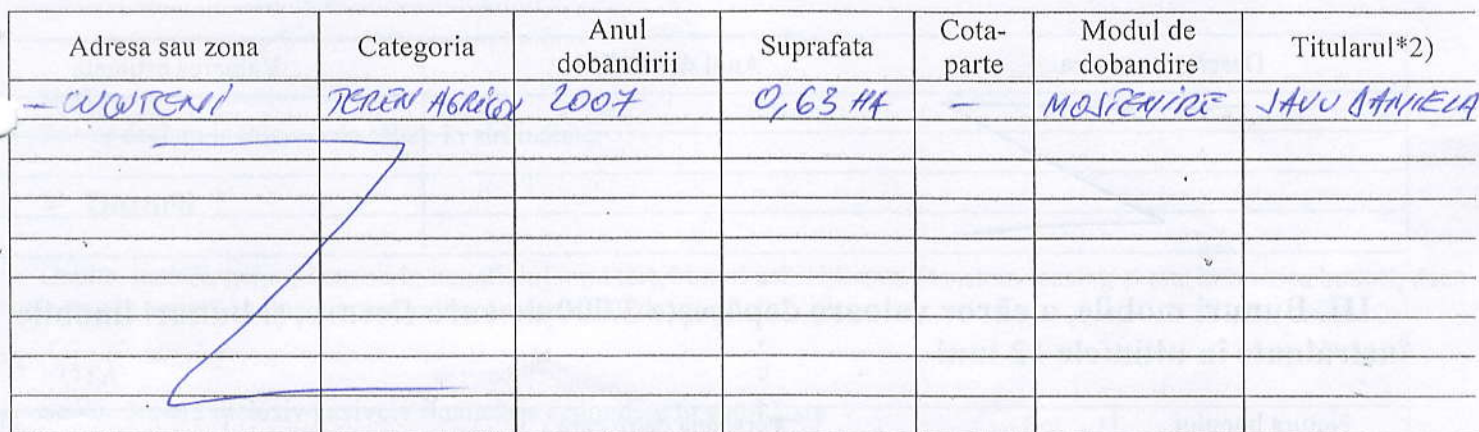 Adresa sau zona Categoria Anul dobandirii Suprafata Cota-parte Modul de dobandire Titularul*2)
- CUCUTENI TEREN AGRICOL 2007 0,63 HA - MOSTENIRE SAVU DANIELA